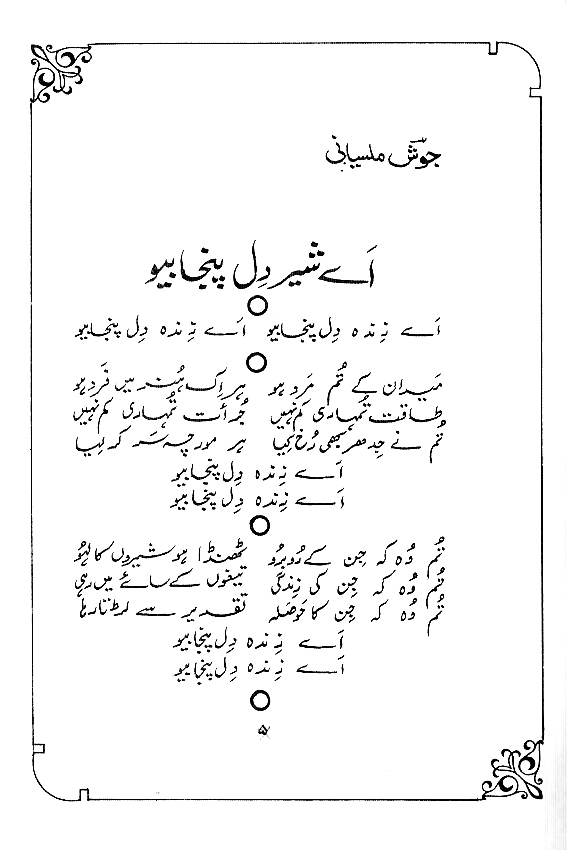 جوشؔ ملسیانی
اَے شیر دِل پنجابیو
اَے زِندہ دِل پنجابیو اَے زِندہ دِل پنجابیو
مَیدان کے تُم مَرد ہو ہر اِک ہُنر میں فَرد ہو
طاقت تُمہاری کم نہیں جُرأت تُمہاری کم نہیں
تُم نے جِدھر بھی رُخ کِیا ہر مورچہ سَر کر لیا
اَے زِندہ دِل پنجابیو
اَے زِندہ دِل پنجابیو
تُم وُہ کہ جِن کے رُوبرُو ٹھنڈا ہو شیروں کا لہُو
تُم وُہ کہ جِن کی زِندگی تیغوں کے سائے میں رہی
تُم وُہ کہ جِن کا حَوصلہ تقدیر سے لڑتا رہا
اَے زِندہ دِل پنجابیو
اَے زِندہ دِل پنجابیو
۵